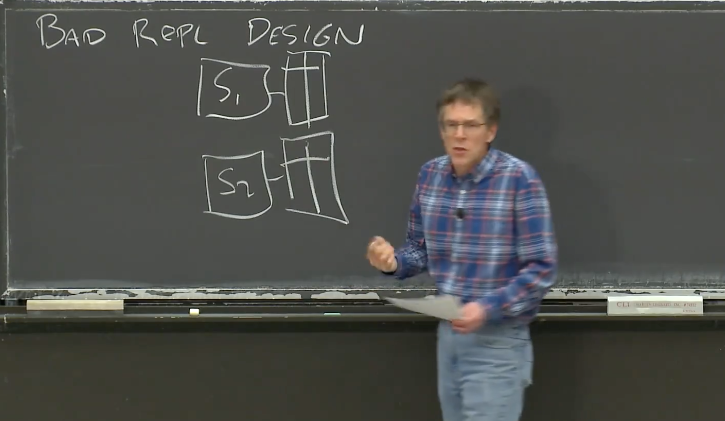 BAD REPL DESIGN
S1
S2